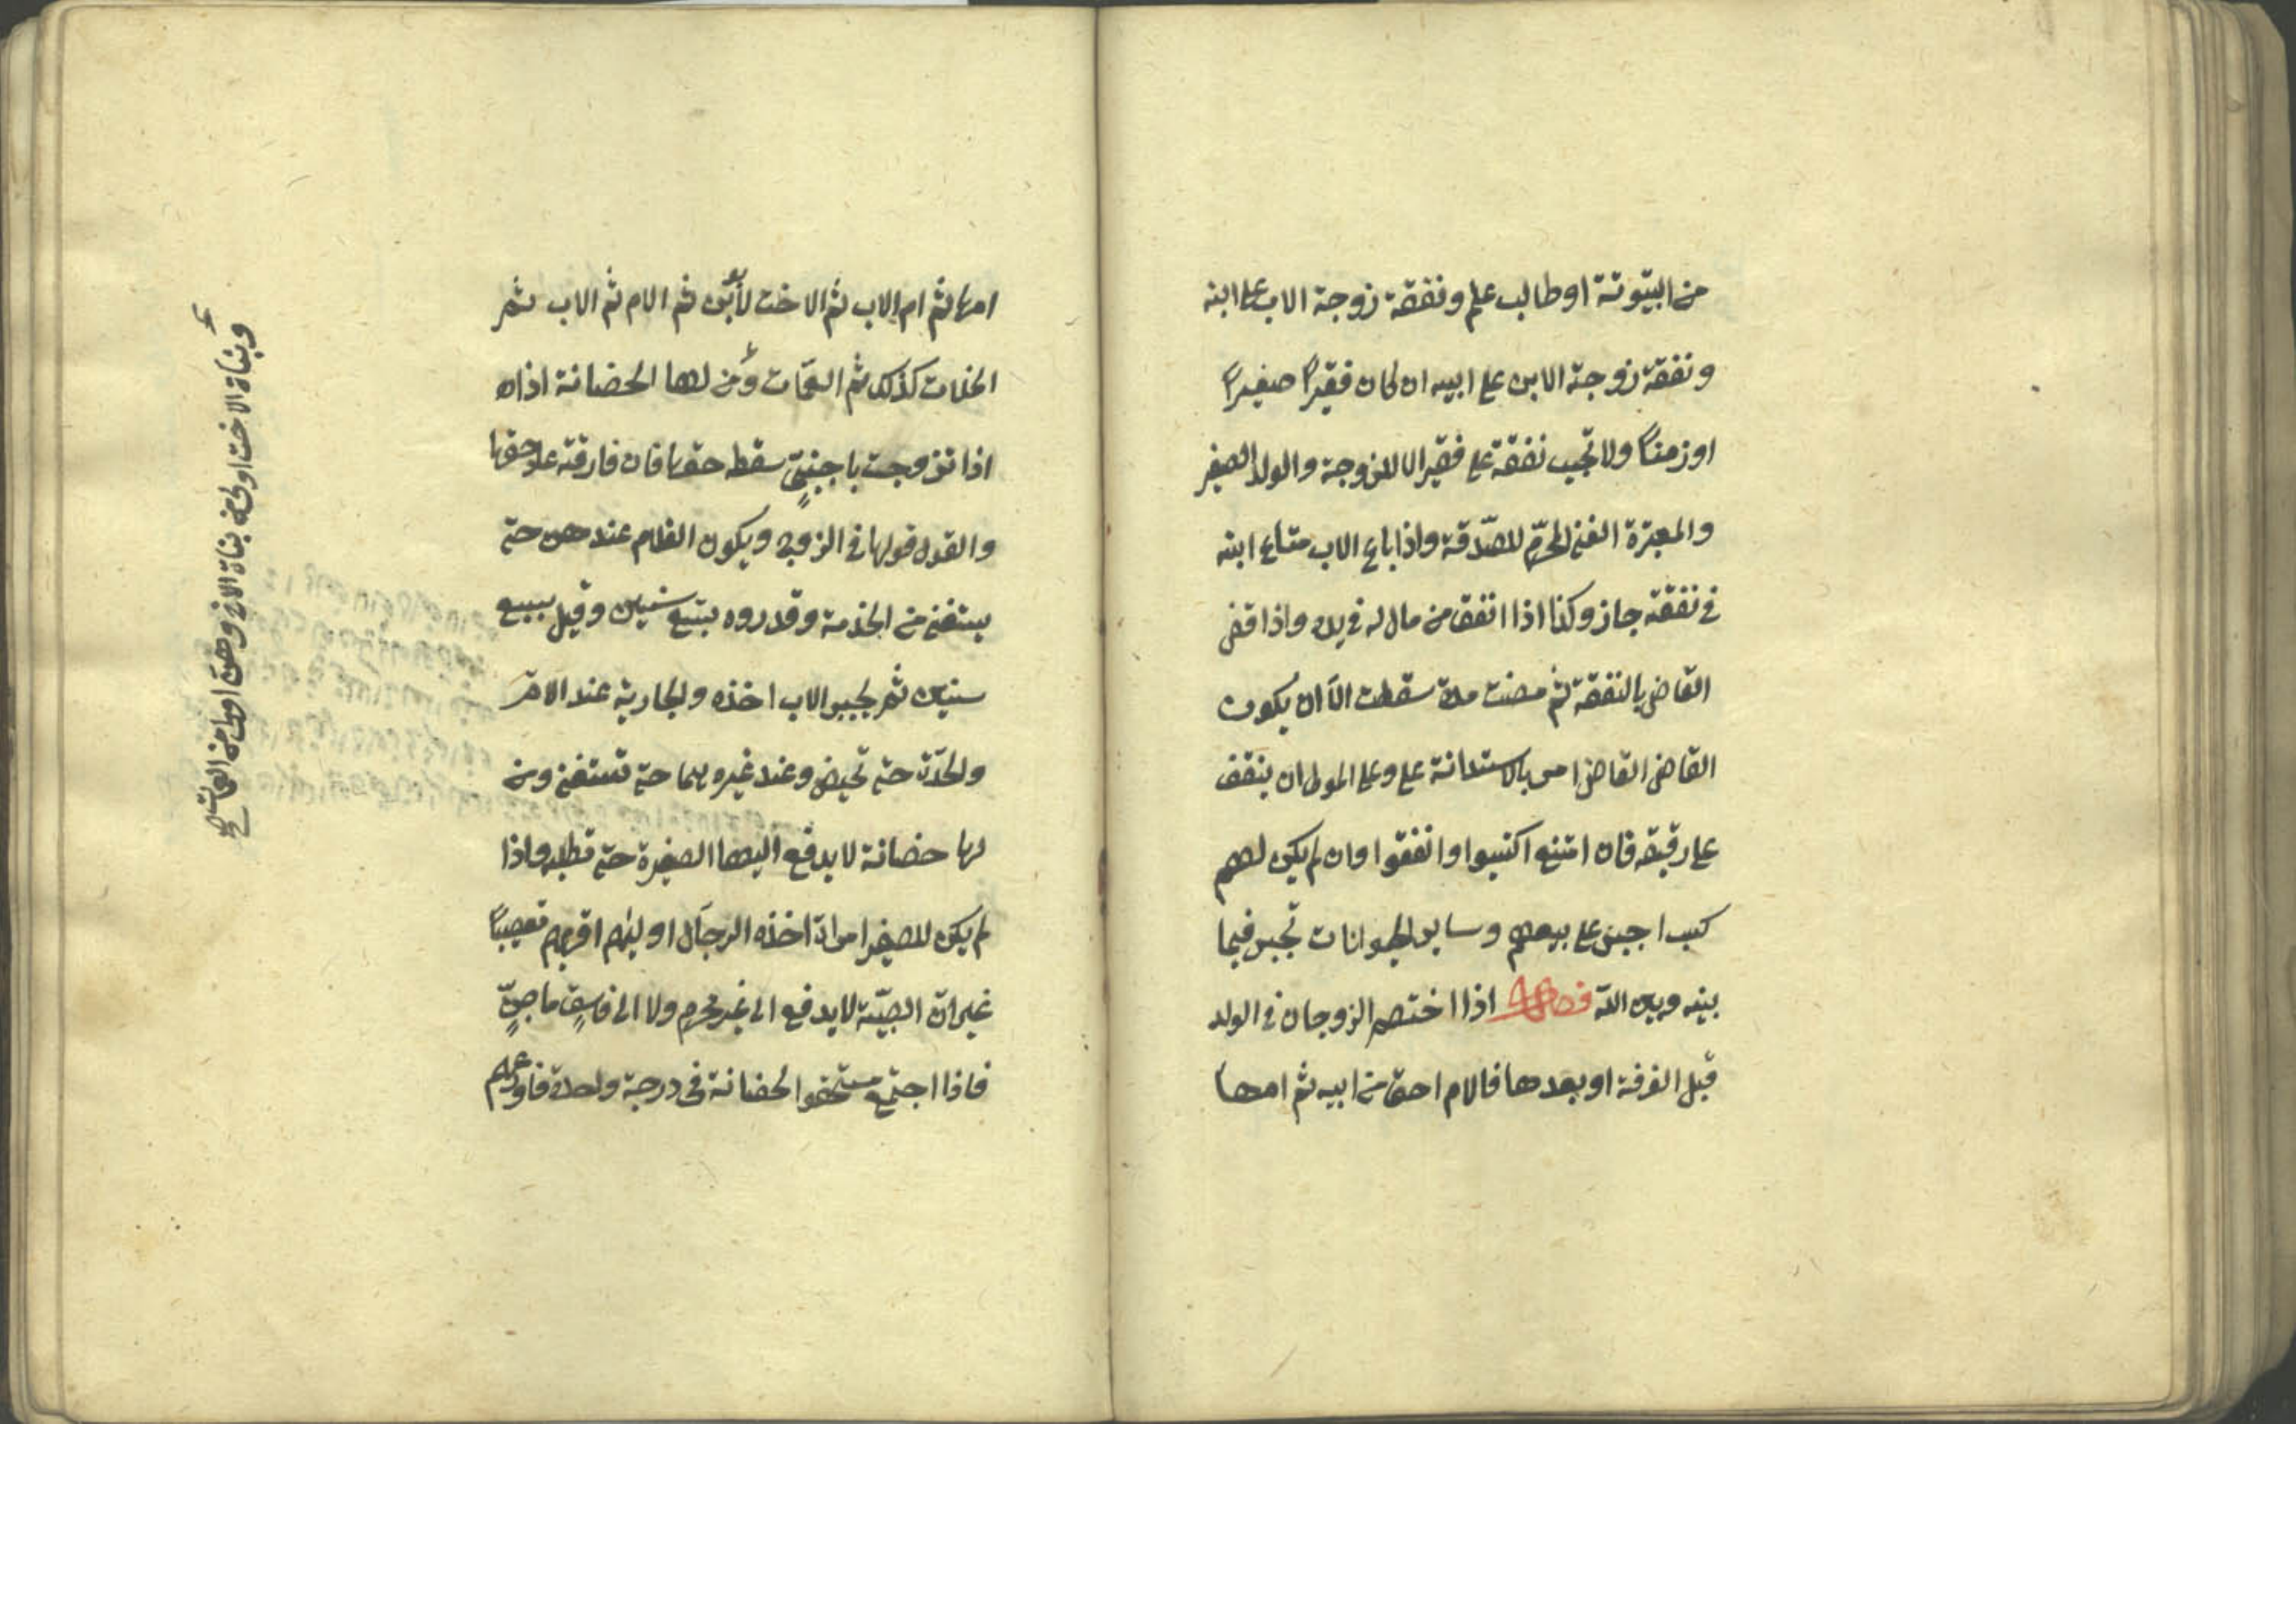 من البيتوتة او طالب علم ونفقة زوجة الاب على ابنه
ونفقة زوجة الابن على ابيه ان كان فقيرًا صغيرًا
او زمنًا ولا تجب نفقة على فقير الا للزوجة والولد الصغير
والمعتبرة الغنى المحرّم للصدقة واذا باع الاب متاع ابنه
في نفقته جاز وكذا اذا انفق من مال له في يده واذا قضى
القاضي بالنفقة ثم مضت مدة سقطت الا ان يكون
القاضي القاضي امر بالاستدانة عليه وعلى المولى ان ينفق
على رقيقه فان امتنع اكتسبوا وانفقوا وان لم يكن لهم
كسب اجبر على بيعهم وساير الحيوانات تجبر فيما
بينه وبين الله فصل اذا اختصم الزوجان في الولد
قبل الفرقة او بعدها فالام احق من ابيه ثم امها
امها ثم ام الاب ثم الاخت لأبوين ثم الام ثم الاب ثم
الخلات كذلك ثم العمّات ومن لها الحضانة اذاه
اذا تزوجت باجنبيّ سقط حقها فان فارقته عاد حقها
والقول قولها في الزوج ويكون الغلام عندهن حتى
يستغنى من الخذمة وقدروه بتسع سنين وقيل بسبع
سنين ثم يجبر الاب اخذه والجارية عند الامّ
والجدّة حتى تحيض وعند غيرهما حتى تستغنى ومن
لها حضانة لا يدفع اليها الصغيرة حتى تطلبه واذا
لم يكن للصغير امراة اخذه الرجال اوليهم اقربهم تعصيبًا
غير انّ الصبيّة لا يدفع الى غير محرم ولا الى فاسق ماجنٍ
فاذا اجتمع مستحقو الحضانة في درجة واحدة فاورعهم
وبناة الاخت اولى من بناة الاخ وهنّ اولى من العمات